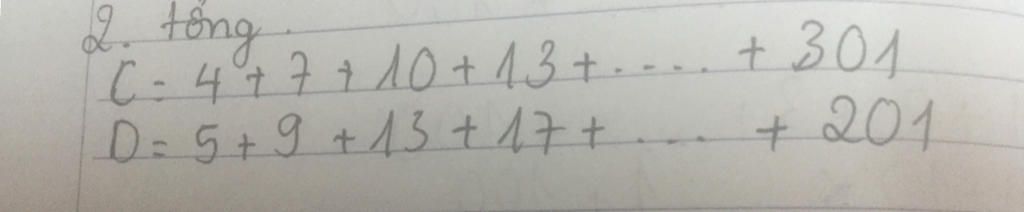 2. tổng.
C = 4 + 7 + 10 + 13 + ..... + 301
D = 5 + 9 + 13 + 17 + .... + 201